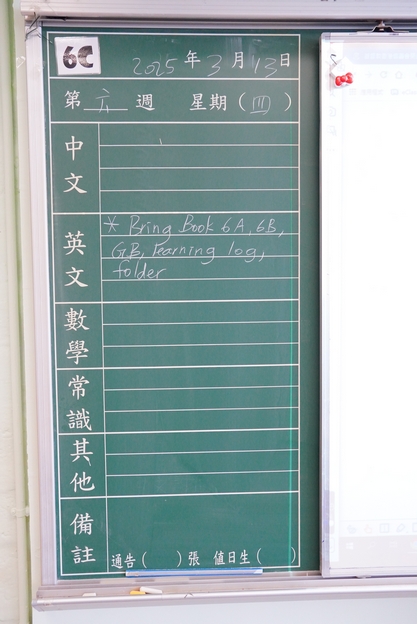 6C
2025年3月13日
第六週 星期(四)
中文
英文
* Bring Book 6A, 6B,
GB, Learning log,
folder
數學
常識
其他
備註
通告( )張 值日生( )